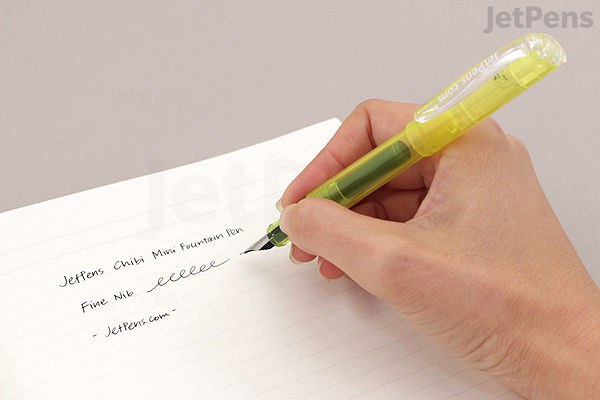 JetPens
JetPens.com
JetPens
JetPens Chibi Mini Fountain Pen
Fine Nib
- JetPens.com -